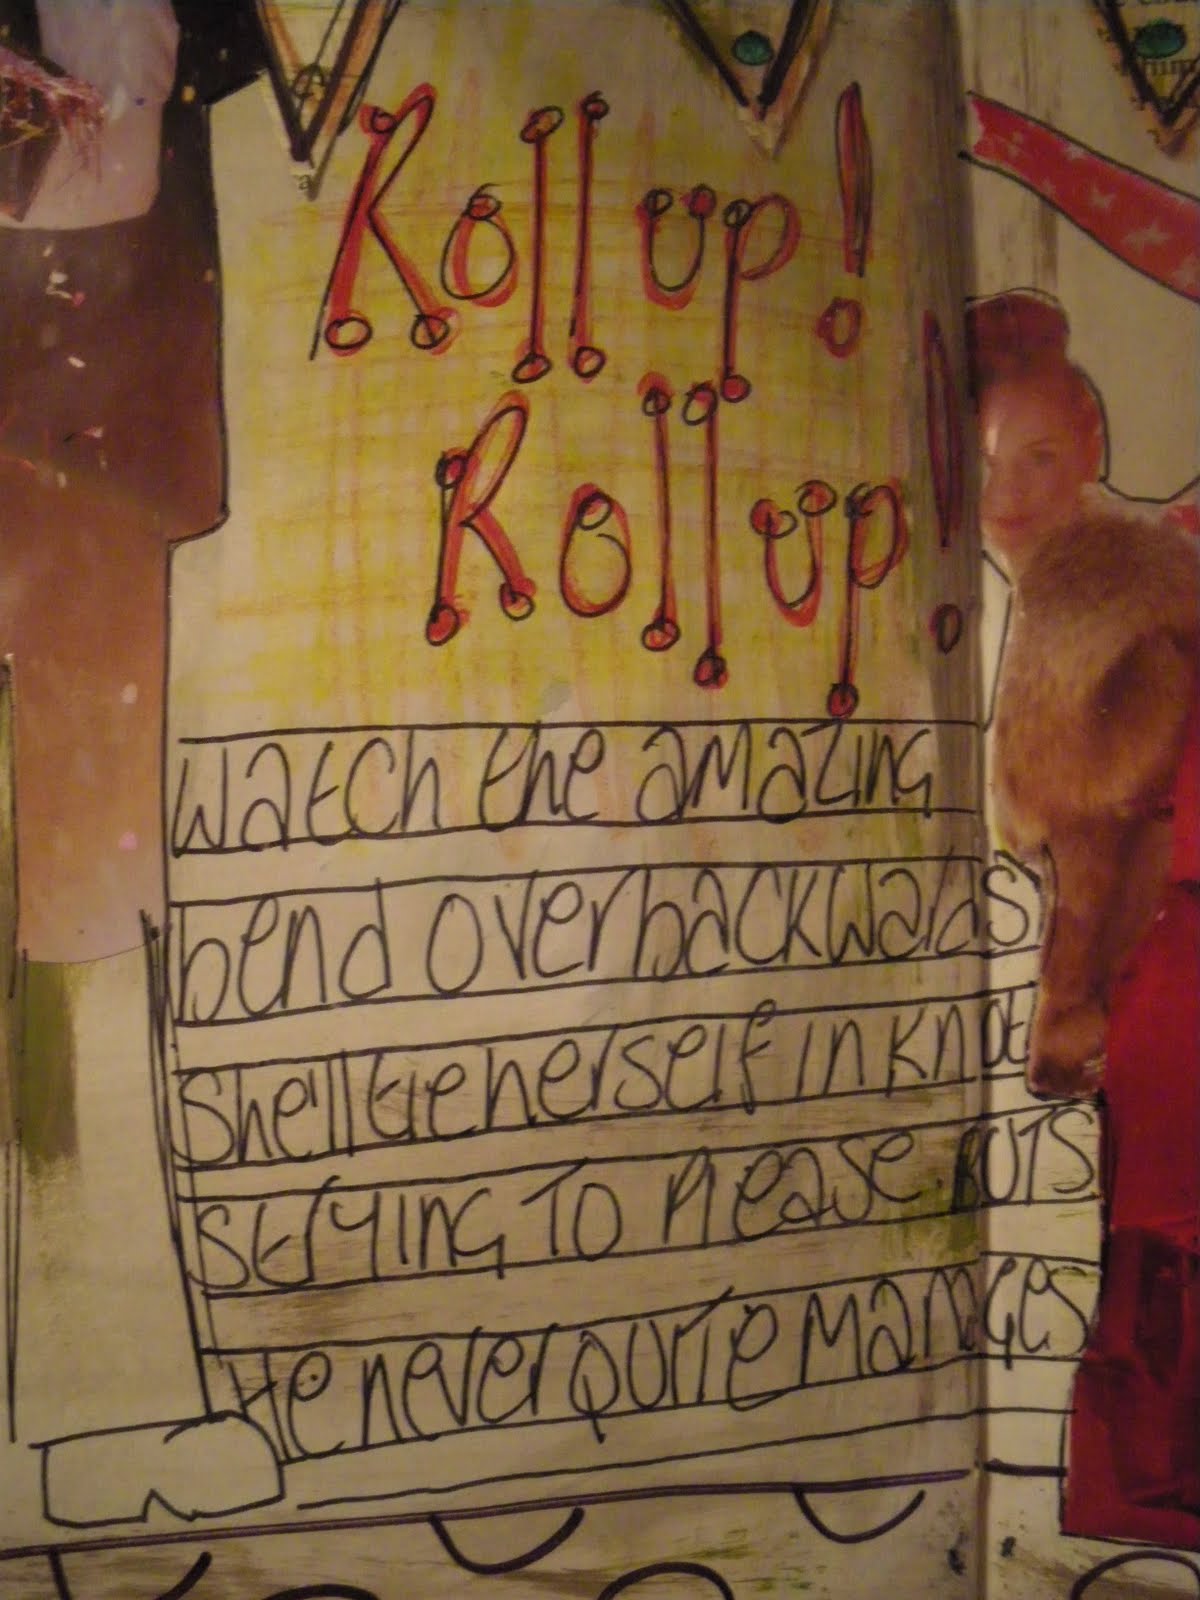 Roll up!
Roll up!
Watch the amazing
bend over backwards
She'll tie herself in knot
s trying to please. BUT S
He never quite manages